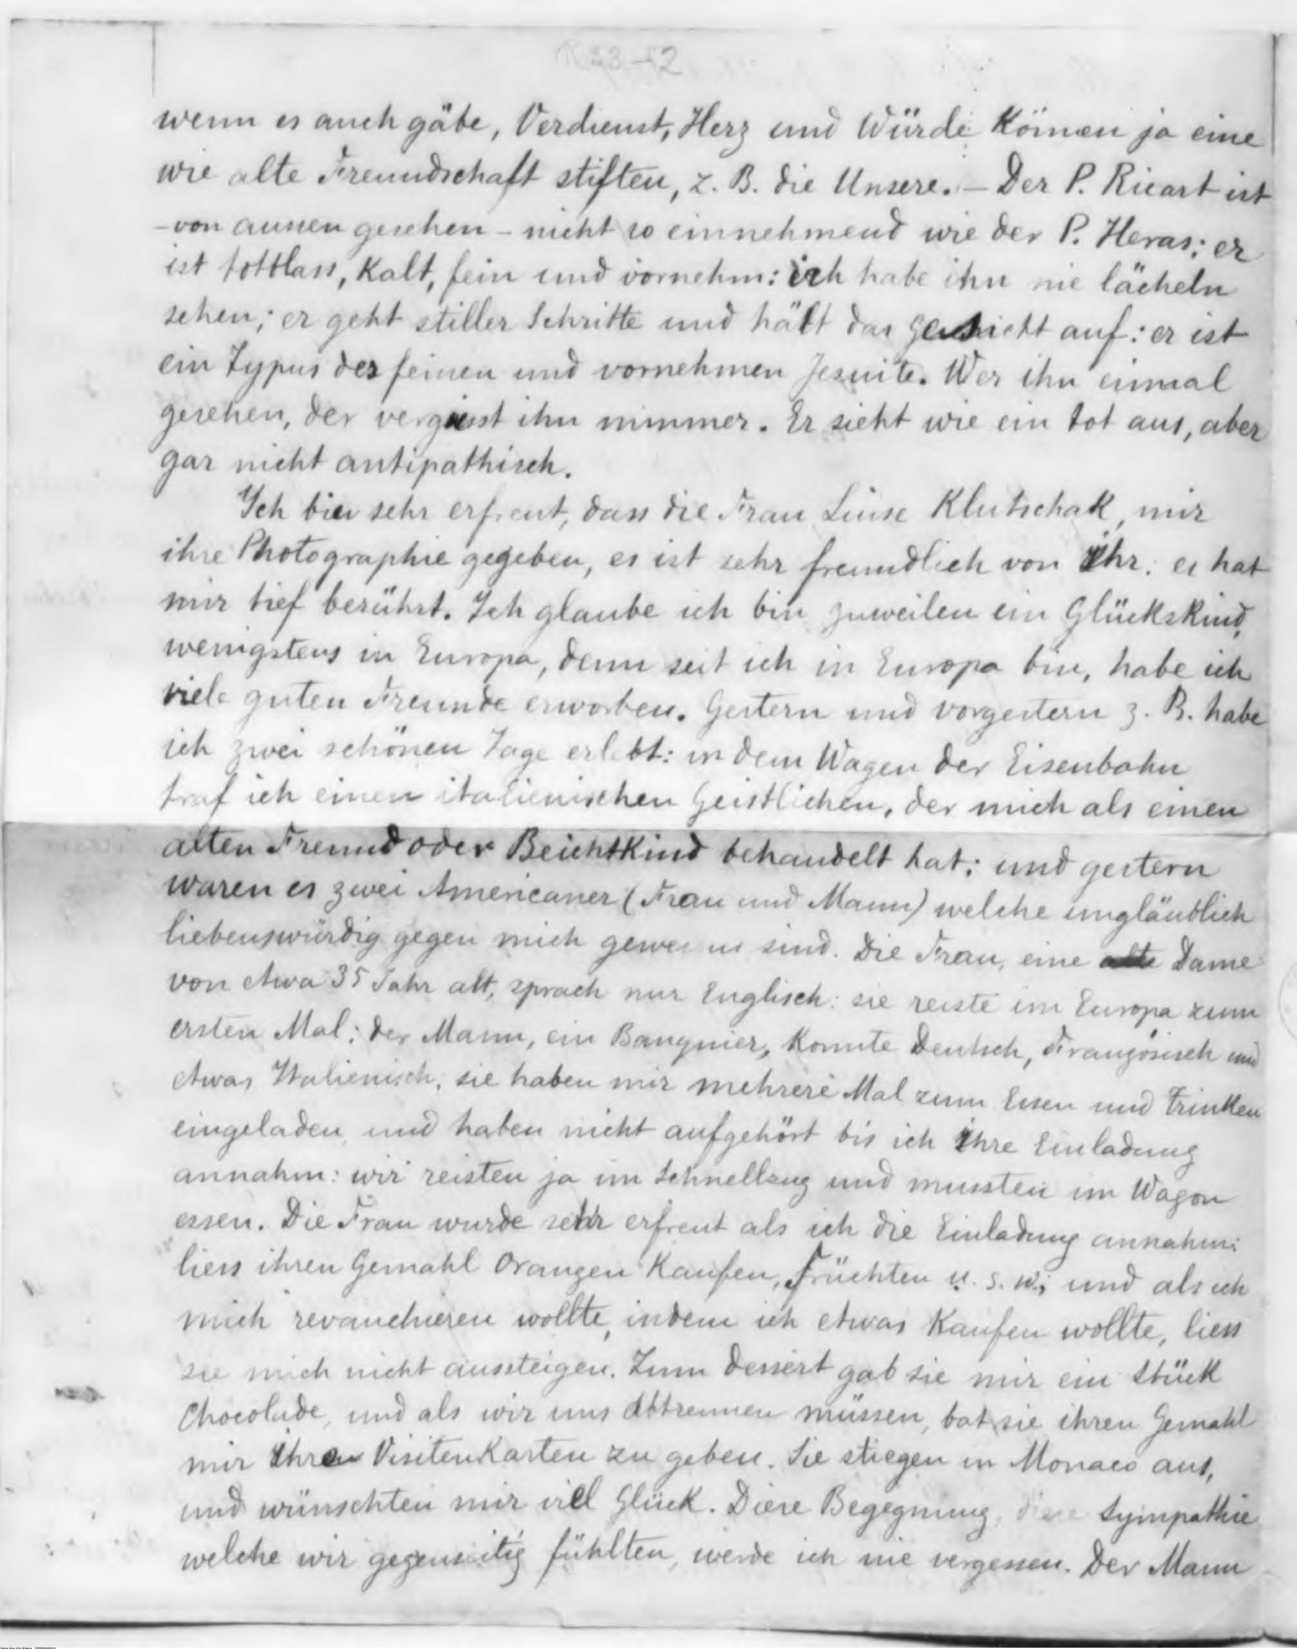 R 33-12
wenn es auch gäbe, Verdienst, Herz und Würde können ja eine
wie alte Freundschaft stiften, z. B. die Unsere. — Der P. Ricart ist
- von aussen gesehen - nicht so einnehmend wie der P. Heras; er
ist totblass, kalt, fein und vornehm: ich habe ihn nie lächeln
sehen; er geht stiller Schritte und hält das Gesicht auf: er ist
ein Typus des feinen und vornehmen Jesuite. Wer ihn einmal
gesehen, der vergisst ihn nimmer. Er sieht wie ein tot aus, aber
gar nicht antipathisch.
Ich bin sehr erfreut, dass die Frau Luise Klutschak, mir
ihre Photographie gegeben, es ist sehr freundlich von ihr: es hat
mir tief berührt. Ich glaube ich bin zuweilen ein Glückskind,
wenigstens in Europa, denn seit ich in Europa bin, habe ich
viele guten Freunde erworben. Gestern und vorgestern z. B. habe
ich zwei schönen Tage erlebt: in dem Wagen der Eisenbahn
traf ich einen italienischen Geistlichen, der mich als einen
alten Freund oder Beichtkind behandelt hat; und gestern
waren es zwei Americaner (Frau und Mann) welche ungläublich
liebenswürdig gegen mich gewesen sind. Die Frau, eine alte Dame
von etwa 35 Jahr alt, sprach nur Englisch: sie reiste im Europa zum
ersten Mal; der Mann, ein Banquier, konnte Deutsch, Französisch und
etwas Italienisch; sie haben mir mehrere Mal zum Essen und Trinken
eingeladen und haben nicht aufgehört bis ich ihre Einladung
annahm: wir reisten ja im Schnellzug und mussten im Wagon
essen. Die Frau wurde sehr erfreut als ich die Einladung annahm;
liess ihren Gemahl Orangen kaufen, Früchten u. s. w.; und als ich
mich revanchieren wollte, indem ich etwas kaufen wollte, liess
sie mich nicht aussteigen. Zum Dessert gab sie mir ein Stück
Chocolade, und als wir uns abtrennen müssen, bat sie ihren Gemahl
mir ihren Visitenkarten zu geben. Sie stiegen in Monaco aus,
und wünschten mir viel Glück. Diese Begegnung, diese Sympathie
welche wir gegenseitig fühlten, werde ich nie vergessen. Der Mann